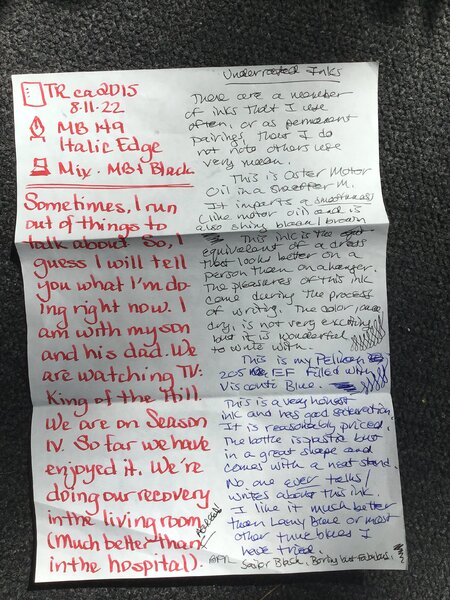 TR ca2015
8-11-22
MB 149
Italic Edge
Mix. MB + Black
Sometimes, I run
out of things to
talk about. So, I
guess I will tell
you what I'm do-
ing right now. I
am with my son
and his dad. We
are watching TV:
King of the Hill.
We are on Season
IV. So far we have
enjoyed it. We're
doing our recovery
in the living room
(Much better than
in the hospital).
Underrated Inks
There are a number
of inks that I use
often, or as permanent
pairings, that I do
not note others use
very much.
This is Oster Motor
Oil in a Sheaffer M.
It imparts a smoothness
(like motor oil) and is
also shiny black/brown
This ink is the
equivalent of a dress
that looks better on a
person than on a hanger.
The pleasures of this ink
come during the process
of writing. The color, once
dry, is not very exciting
but it is wonderful
to write with.
This is my Pelikan
205 EF filled with
Visconti Blue.
This is a very honest
ink and has good saturation.
It is reasonably priced.
The bottle is plastic but
in a great shape and
comes with a neat stand.
No one ever talks/
writes about this ink.
I like it much better
than Lamy Blue or most
other true blues I
have tried.
Sailor Black. Boring but Fabulous.
2